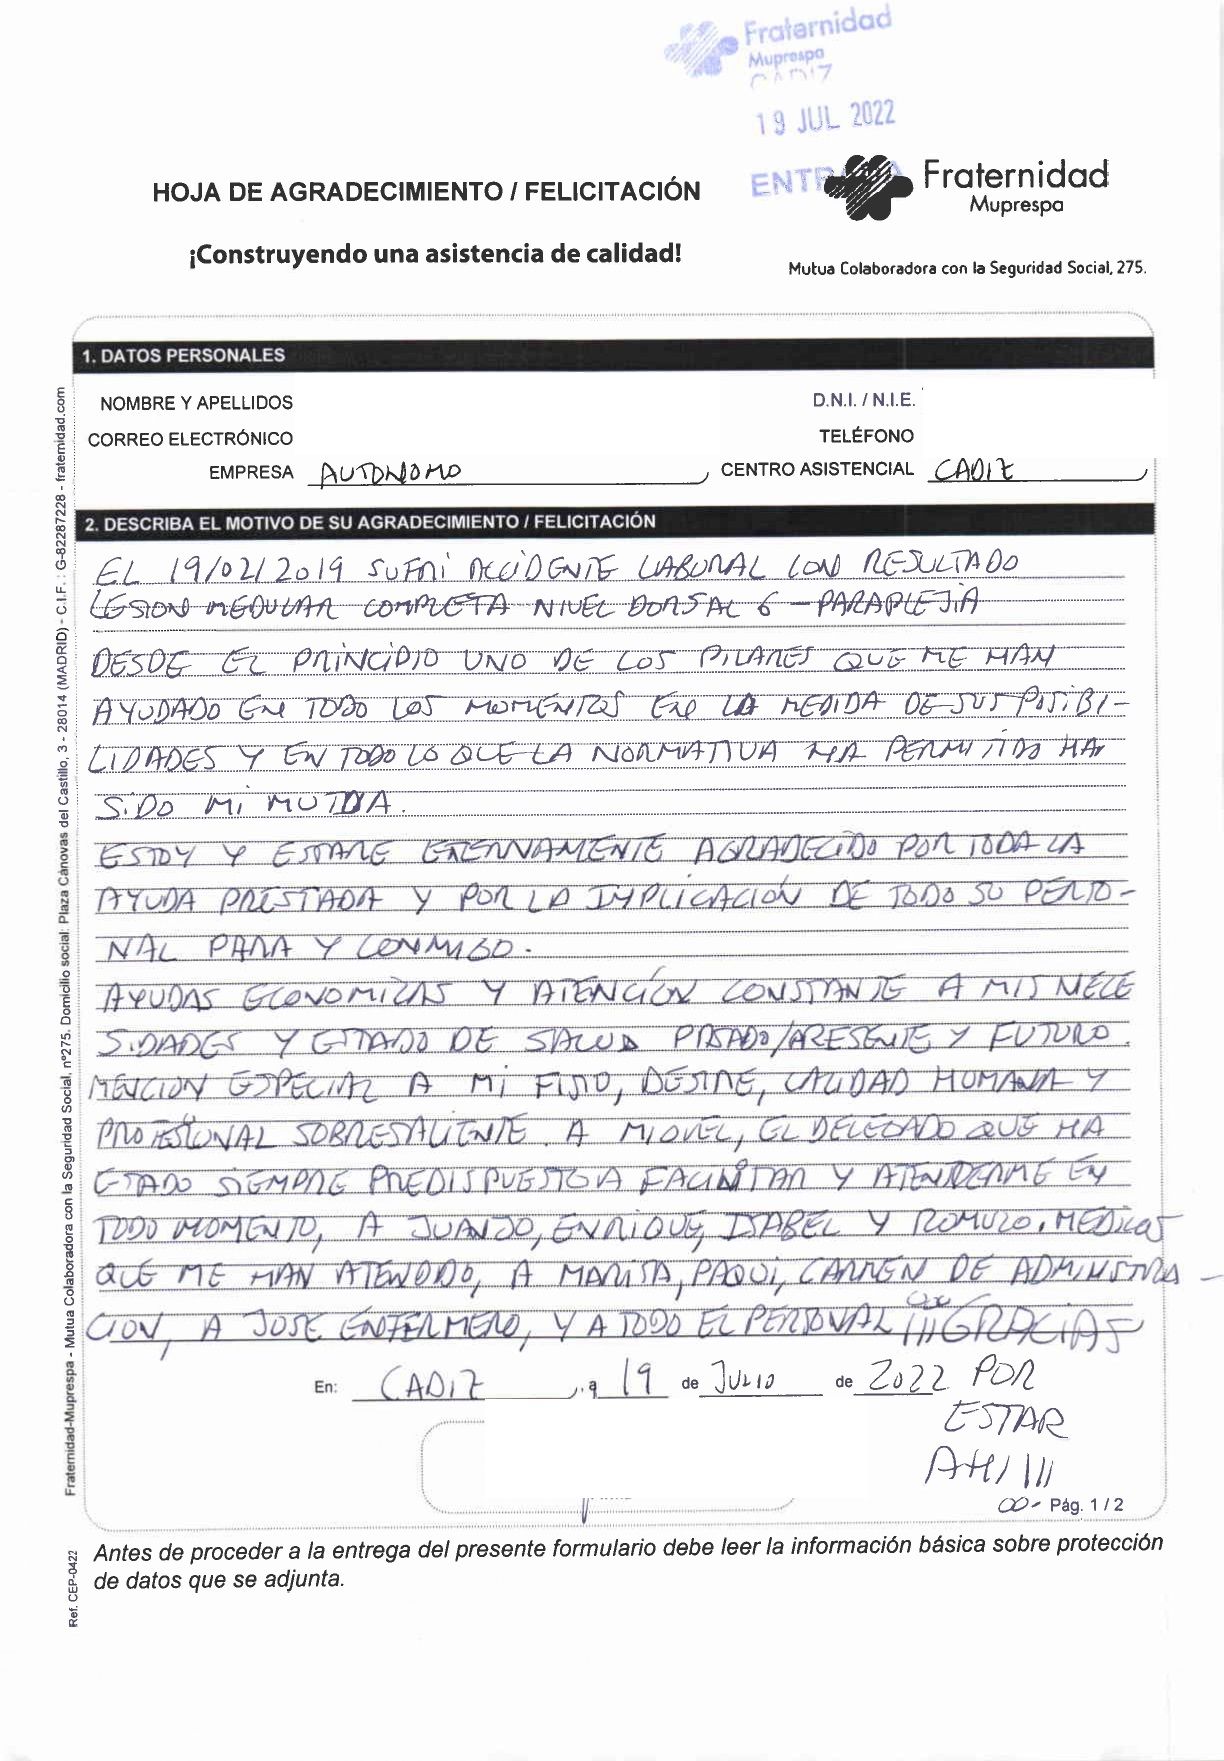 Fraternidad
Muprespa
CADIZ
19 JUL 2022
ENTR
HOJA DE AGRADECIMIENTO / FELICITACIÓN
Fraternidad
Muprespa
¡Construyendo una asistencia de calidad!
Mutua Colaboradora con la Seguridad Social, 275.
1. DATOS PERSONALES
NOMBRE Y APELLIDOS
D.N.I. / N.I.E.
CORREO ELECTRÓNICO
TELÉFONO
EMPRESA AUTONOMO
CENTRO ASISTENCIAL CADIZ
2. DESCRIBA EL MOTIVO DE SU AGRADECIMIENTO / FELICITACIÓN
EL 19/02/2019 SUFRI ACCIDENTE LABORAL CON RESULTADO
LESION MEDULAR COMPLETA NIVEL DORSAL 6 - PARAPLEJIA
DESDE EL PRINCIPIO UNO DE LOS PILARES QUE ME HAN
AYUDADO EN TODO LOS MOMENTOS EN LA MEDIDA DE SUS POSIBI-
LIDADES Y EN TODO LO QUE LA NORMATIVA HA PERMITIDO HA
SIDO MI MUTUA.
ESTOY Y ESTARE ETERNAMENTE AGRADECIDO POR TODA LA
AYUDA PRESTADA Y POR LA IMPLICACIÓN DE TODO SU PERSO-
NAL PARA Y CONMIGO.
AYUDAS ECONOMICAS Y ATENCIÓN CONSTANTE A MIS NECE
SIDADES Y ESTADO DE SALUD PASADO/PRESENTE Y FUTURO.
MENCION ESPECIAL A MI FISIO, DESIRE, CALIDAD HUMANA Y
PROFESIONAL SOBRESALIENTE. A MIGUEL, EL DELEGADO QUE HA
ESTADO SIEMPRE PREDISPUESTO A FACILITAR Y ATENDERME EN
TODO MOMENTO, A JUANJO, ENRIQUE, ISABEL Y ROMULO, MEDICOS
QUE ME HAN ATENDIDO, A MARISA, PAQUI, CARMEN DE ADMINISTRA-
CION, A JOSE ENFERMERO, Y A TODO EL PERSONAL ¡¡¡GRACIAS
En: CADIZ, a 19 de JULIO de 2022 POR
ESTAR
AHI !!!
Pág. 1 / 2
Antes de proceder a la entrega del presente formulario debe leer la información básica sobre protección
de datos que se adjunta.
Fraternidad-Muprespa - Mutua Colaboradora con la Seguridad Social, nº275. Domicilio social: Plaza Cánovas del Castillo, 3 - 28014 (MADRID) - C.I.F.: G-82287228 - fraternidad.com
Ref. CEP-0422